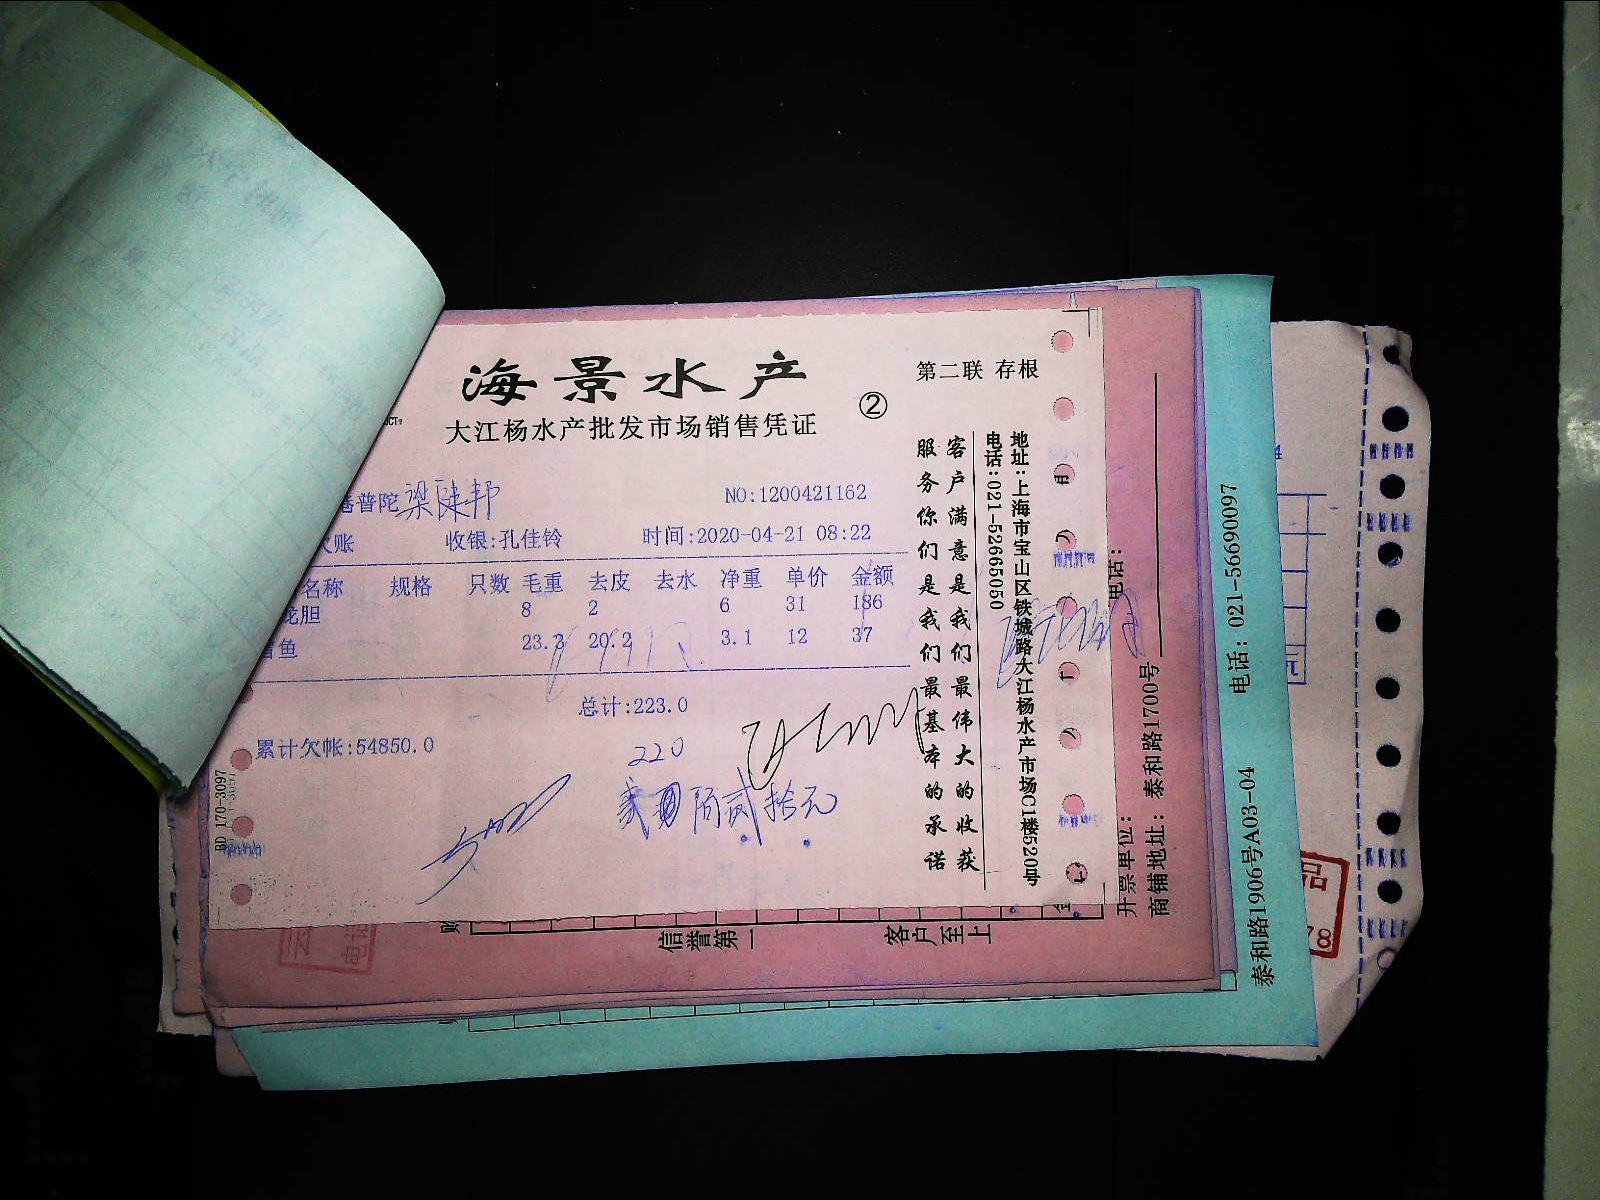 海景水产
大江杨水产批发市场销售凭证
②
第二联 存根
普陀 梁健邦
NO:1200421162
欠账 收银:孔佳铃 时间:2020-04-21 08:22
名称 规格 只数 毛重 去皮 去水 净重 单价 金额
龙胆 8 2 6 31 186
鱼 23.3 20.2 3.1 12 37
总计:223.0
累计欠帐:54850.0
220
佰贰拾元
客户满意是我们最伟大的收获
服务你们是我们最基本的承诺
地址:上海市宝山区铁城路大江杨水产市场C1楼520号
电话:021-52665050
BD 170-3097
信誉第一
客户至上
开票单位:
电话:
商铺地址: 泰和路1700号
泰和路1906号A03-04
电话: 021-56690097